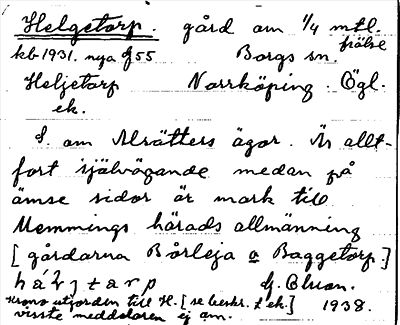 Helgetorp. gård om 1/4 mtl. frälse
kb 1931. nya G55 Borgs sn.
Heljetorp Norrköping. Ögl.
ek.
S. om Alrätters ägor. Är allt-
fort självägande medan på
ömse sidor är mark till
Memmings härads allmänning
[gårdarna Börleja o Baggetorp]
Krono utjorden till H. [se beskr. t ek.] 1938.
visste meddelaren ej om.